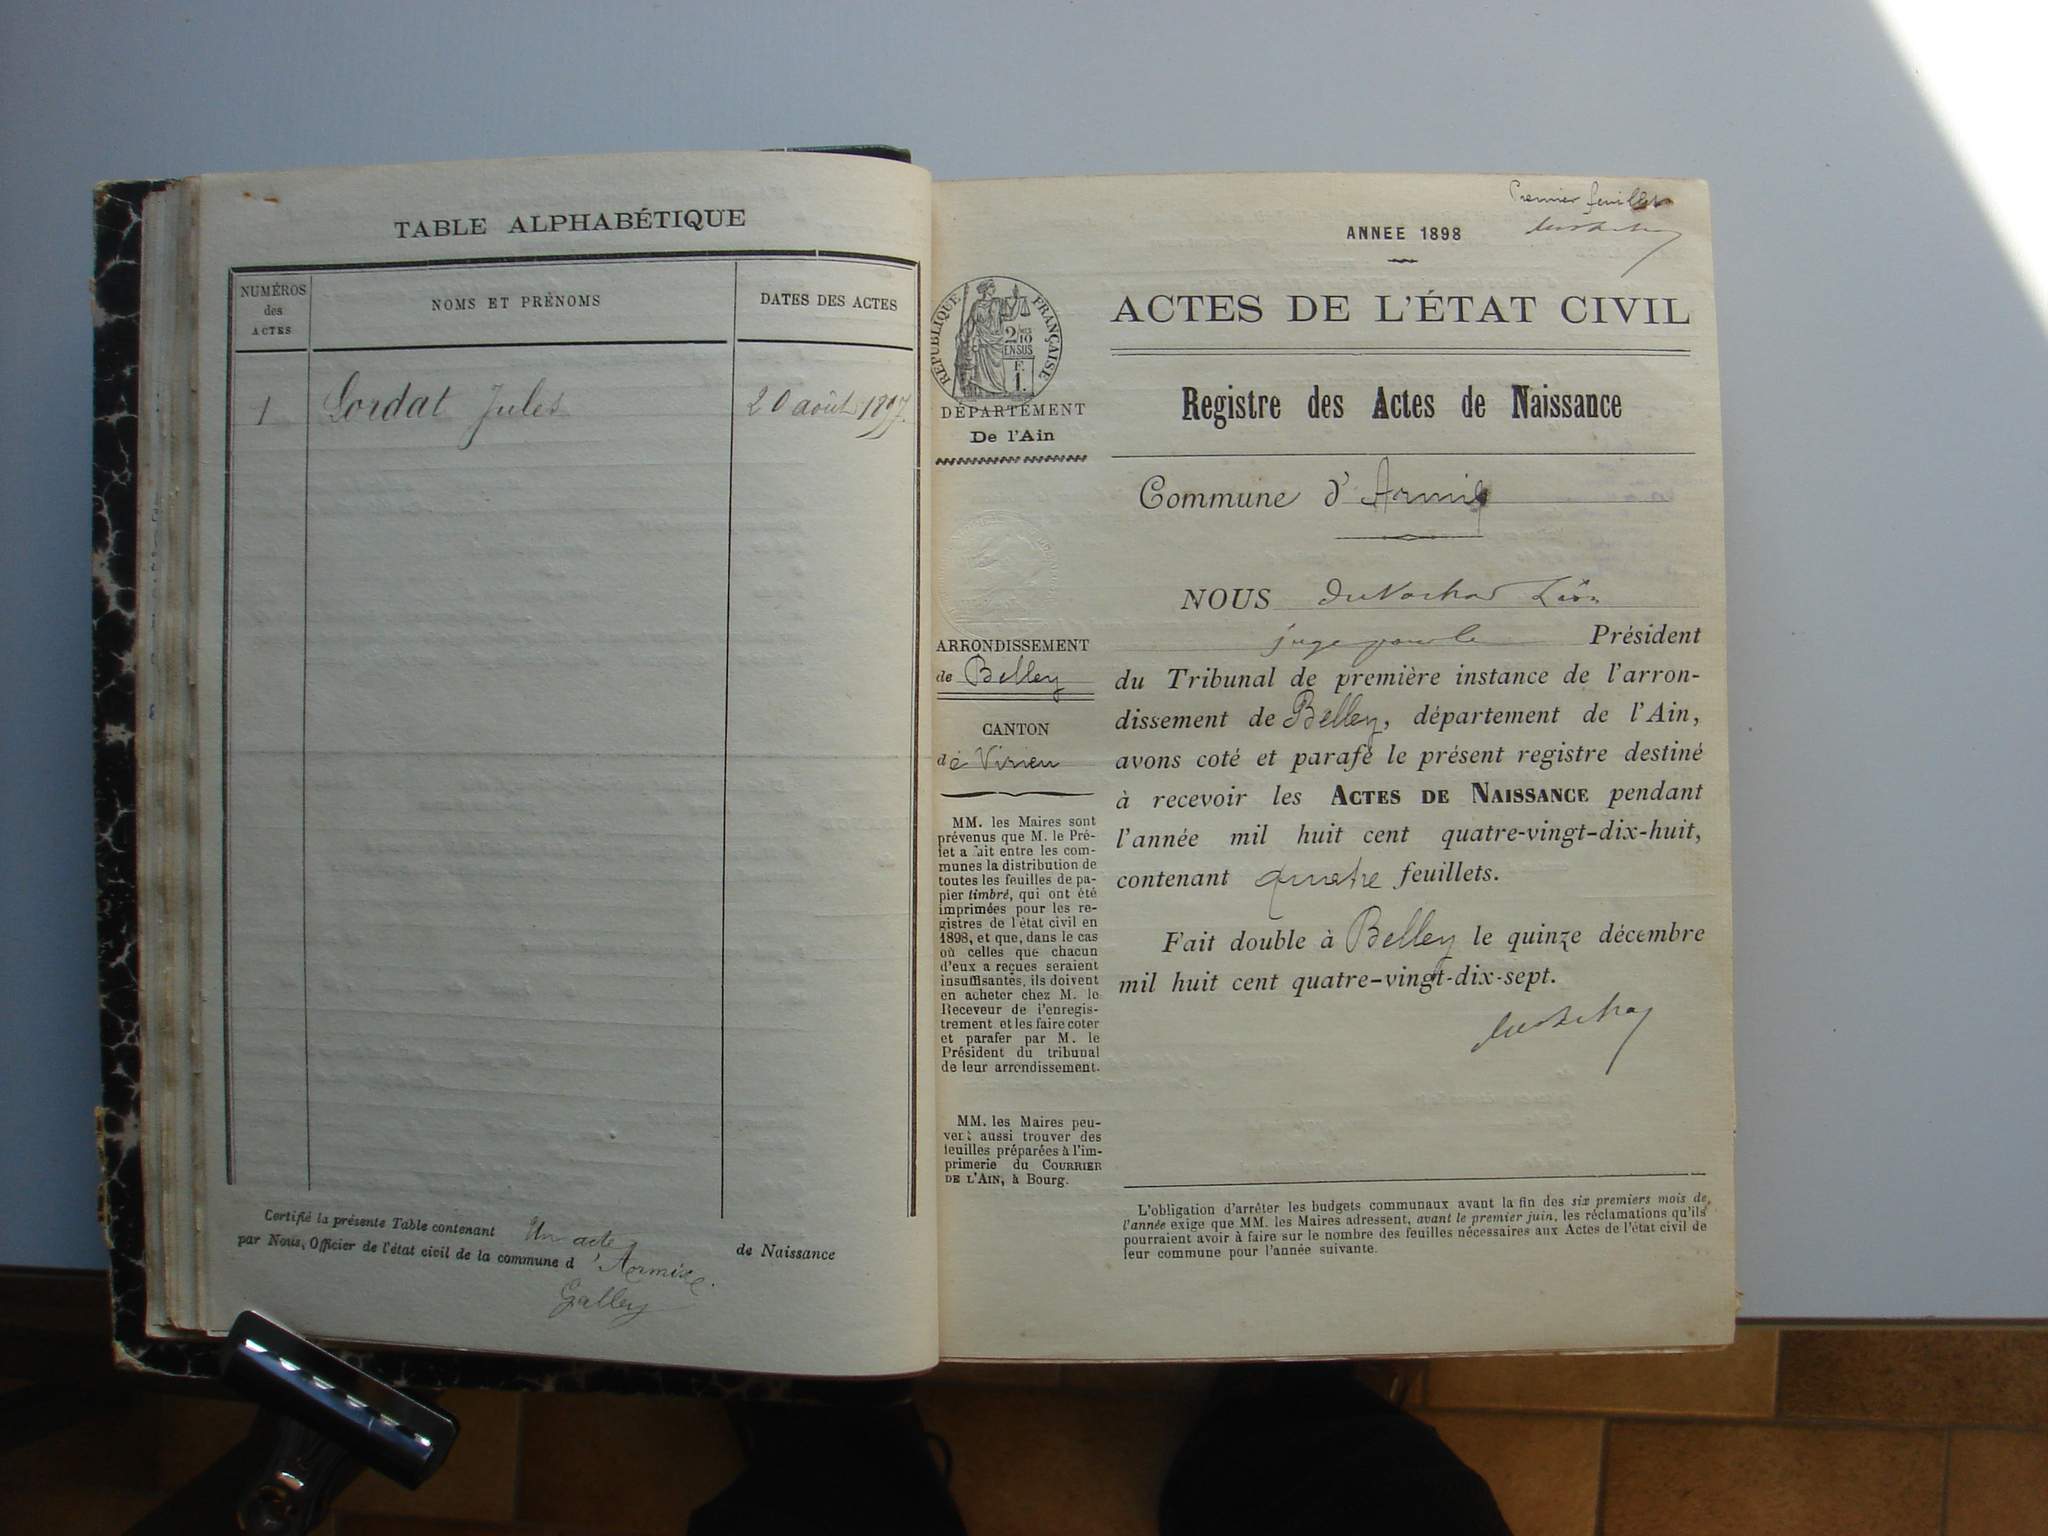 TABLE ALPHABÉTIQUE
NUMÉROS
des
ACTES
NOMS ET PRÉNOMS
DATES DES ACTES
1
Lordat Jules
20 août 1897.
Certifié la présente Table contenant Un acte de Naissance
par Nous, Officier de l'état civil de la commune d'Armix.
Galley
Premier feuillet
ANNEE 1898
RÉPUBLIQUE FRANÇAISE
2/10
EN SUS
F.
1.
DÉPARTEMENT
De l'Ain
ARRONDISSEMENT
de Belley
CANTON
de Virieu
MM. les Maires sont
prévenus que M. le Pré-
fet a fait entre les com-
munes la distribution de
toutes les feuilles de pa-
pier timbré, qui ont été
imprimées pour les re-
gistres de l'état civil en
1898, et que, dans le cas
où celles que chacun
d'eux a reçues seraient
insuffisantes, ils doivent
en acheter chez M. le
Receveur de l'enregis-
trement et les faire coter
et parafer par M. le
Président du tribunal
de leur arrondissement.
MM. les Maires peu-
vent aussi trouver des
feuilles préparées à l'im-
primerie du COURRIER
DE L'AIN, à Bourg.
ACTES DE L'ÉTAT CIVIL
Registre des Actes de Naissance
Commune d'Armix
NOUS
juge pour le Président
du Tribunal de première instance de l'arron-
dissement de Belley, département de l'Ain,
avons coté et parafé le présent registre destiné
à recevoir les ACTES DE NAISSANCE pendant
l'année mil huit cent quatre-vingt-dix-huit,
contenant quatre feuillets.
Fait double à Belley le quinze décembre
mil huit cent quatre-vingt-dix-sept.
L'obligation d'arrêter les budgets communaux avant la fin des six premiers mois de
l'année exige que MM. les Maires adressent, avant le premier juin, les réclamations qu'ils
pourraient avoir à faire sur le nombre des feuilles nécessaires aux Actes de l'état civil de
leur commune pour l'année suivante.